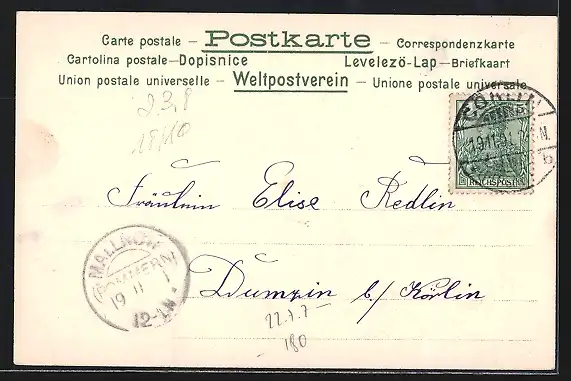 Carte postale — Postkarte — Correspondenzkarte
Cartolina postale — Dopisnice Levelezö-Lap — Briefkaart
Union postale universelle — Weltpostverein — Unione postale universale
REICHSPOST
Fräulein Elise Redlin
MALLNOW
19 11
12-1N
Dumzin b/ Körlin
22.7.7
180